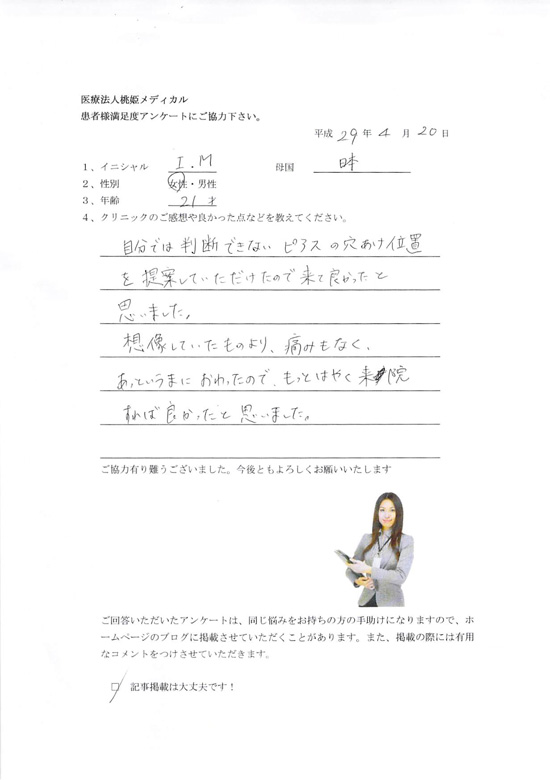 医療法人桃姫メディカル
患者様満足度アンケートにご協力下さい。
平成 29 年 4 月 20 日
1、イニシャル I.M 母国 日本
2、性別 女性・男性
3、年齢 21才
4、クリニックのご感想や良かった点などを教えてください。
自分では判断できない ピアスの穴あけ位置
を提案していただけたので来て良かったと
思いました。
想像していたものより、痛みもなく、
あっというまに おわったので、もっとはやく来院
すれば良かったと思いました。
ご協力有り難うございました。今後ともよろしくお願いいたします
ご回答いただいたアンケートは、同じ悩みをお持ちの方の手助けになりますので、ホ
ームページのブログに掲載させていただくことがあります。また、掲載の際には有用
なコメントをつけさせていただきます。
☐ 記事掲載は大丈夫です！